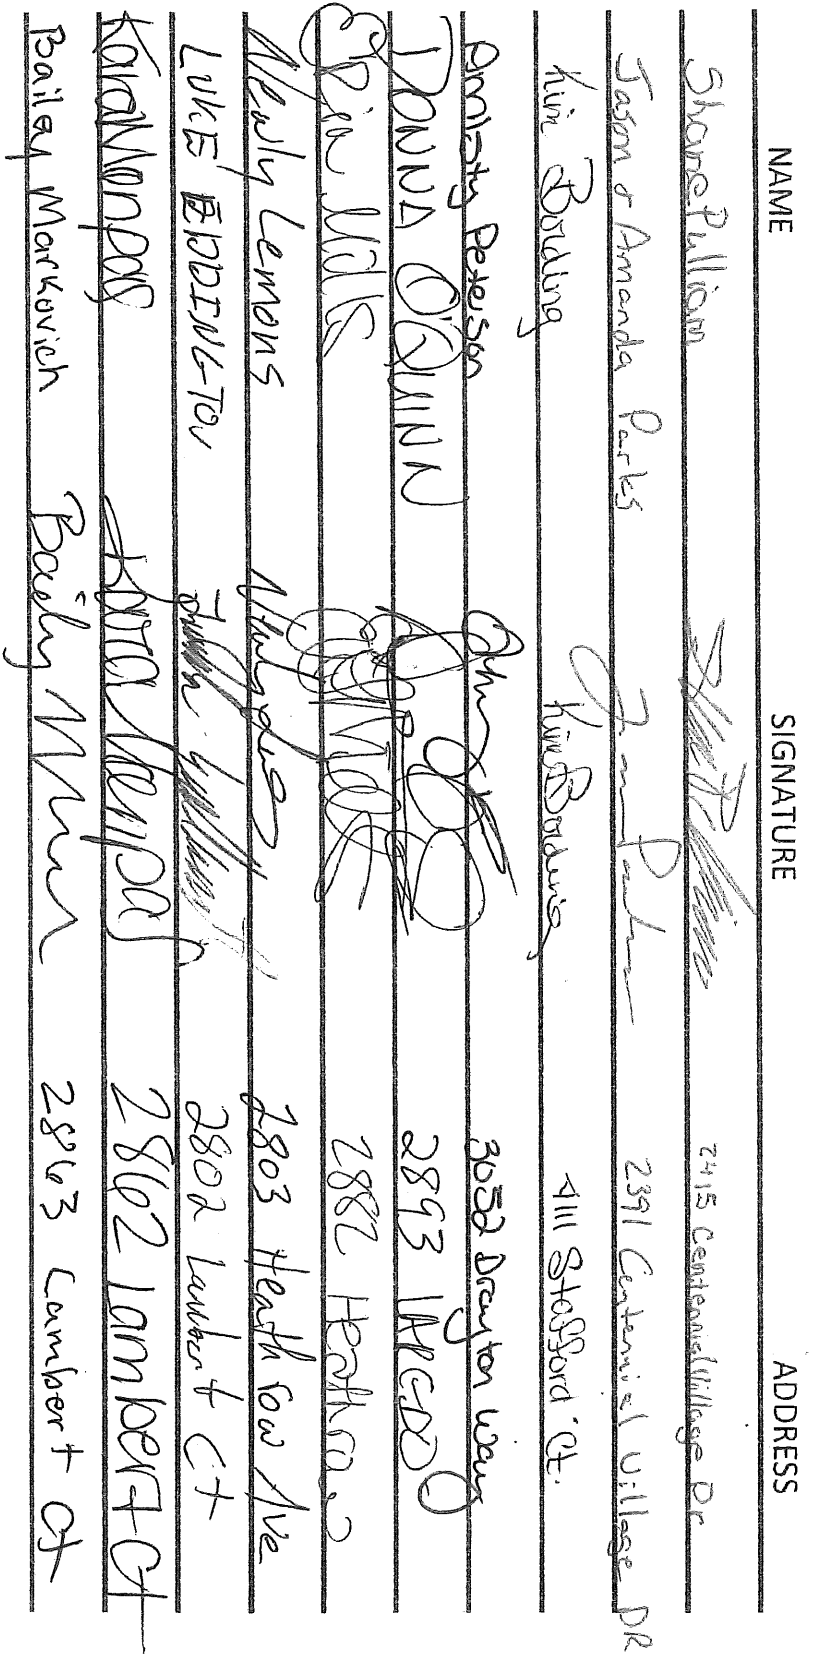 NAME SIGNATURE ADDRESS
Shane Pulliam 2415 Centennial Village Dr
Jason & Amanda Parks 2391 Centennial Village DR
Kim Bording Kim Bording 4111 Stafford Ct.
Amisty Peterson 3052 Drayton Way
DONNA O'QUINN 2893
Erin 2882 Heathrow
Neally Lemons 2803 Heathrow Ave
LUKE EDDINGTON 2802 Lambert CT
Kara Menpas Kara Menpas 2862 Lambert Ct
Bailey Markovich Bailey 2863 Lambert Ct